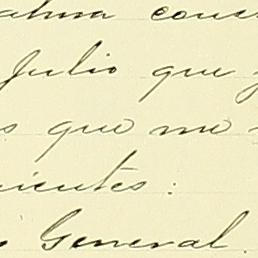 alma cons
Julio que
s que me
uientes:
General.